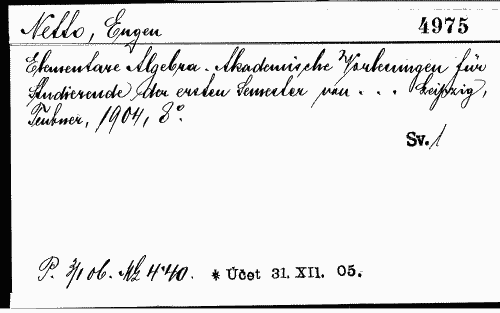 Netto, Eugen
4975
Elementare Algebra. Akademische Vorlesungen für
Studierende der ersten Semester von . . . Leipzig,
Teubner, 1904, 8°.
Sv. 1
P. 3/1 06. Mk 4·40. * Účet 31. XII. 05.